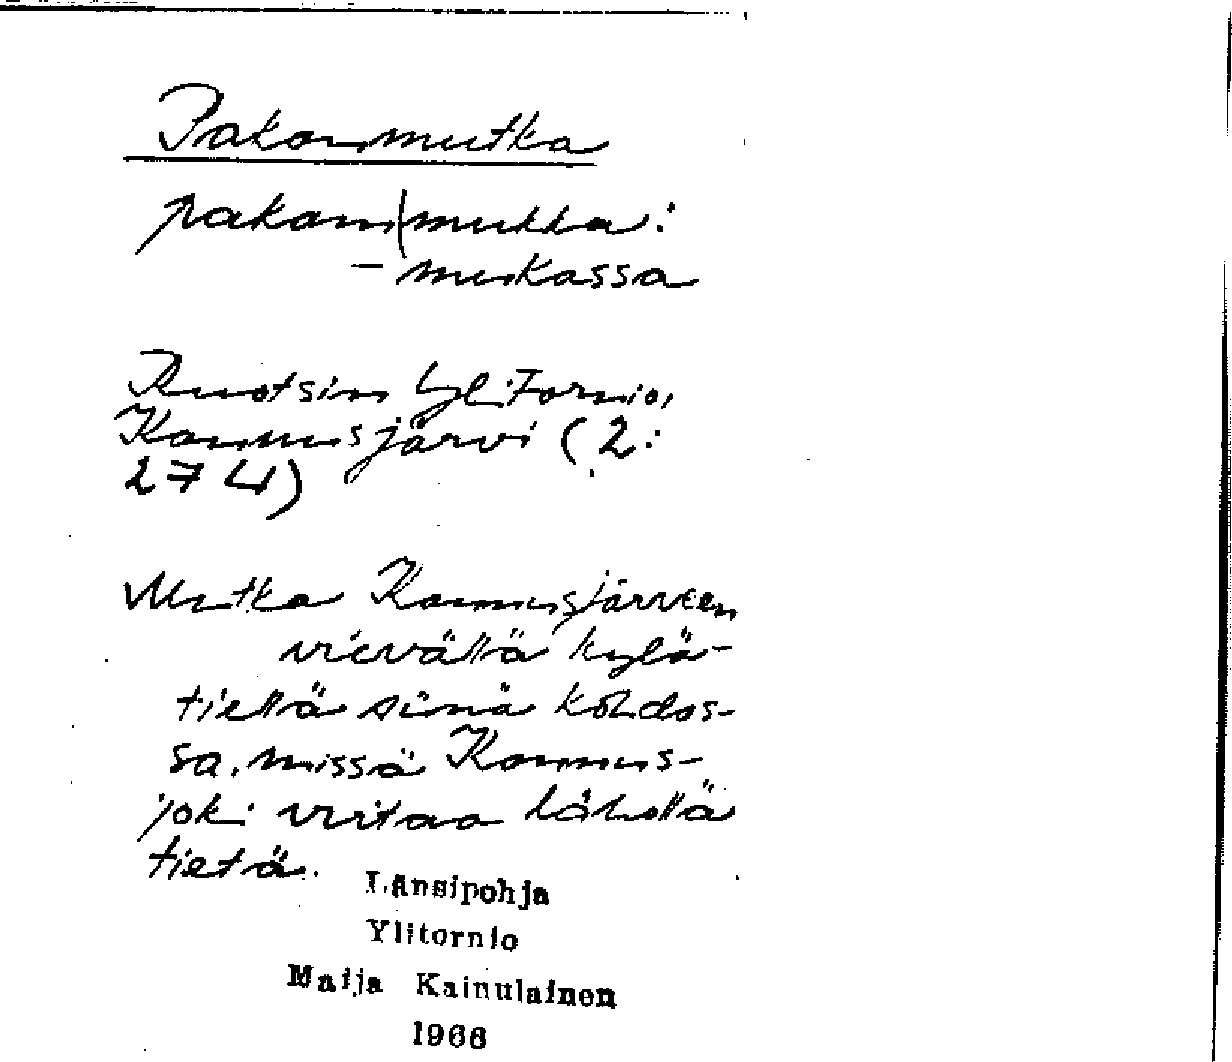 Pakanmutka
pakan|mutka:
– mukassa
Ruotsin Ylitornio,
Kannusjärvi (2:
274)
Mutka Kannusjärveen
vievällä kylä-
tiellä siinä kohdas-
sa, missä Kannus-
joki virtaa lähellä
tietä.
Länsipohja
Ylitornio
Maija Kainulainen
1966